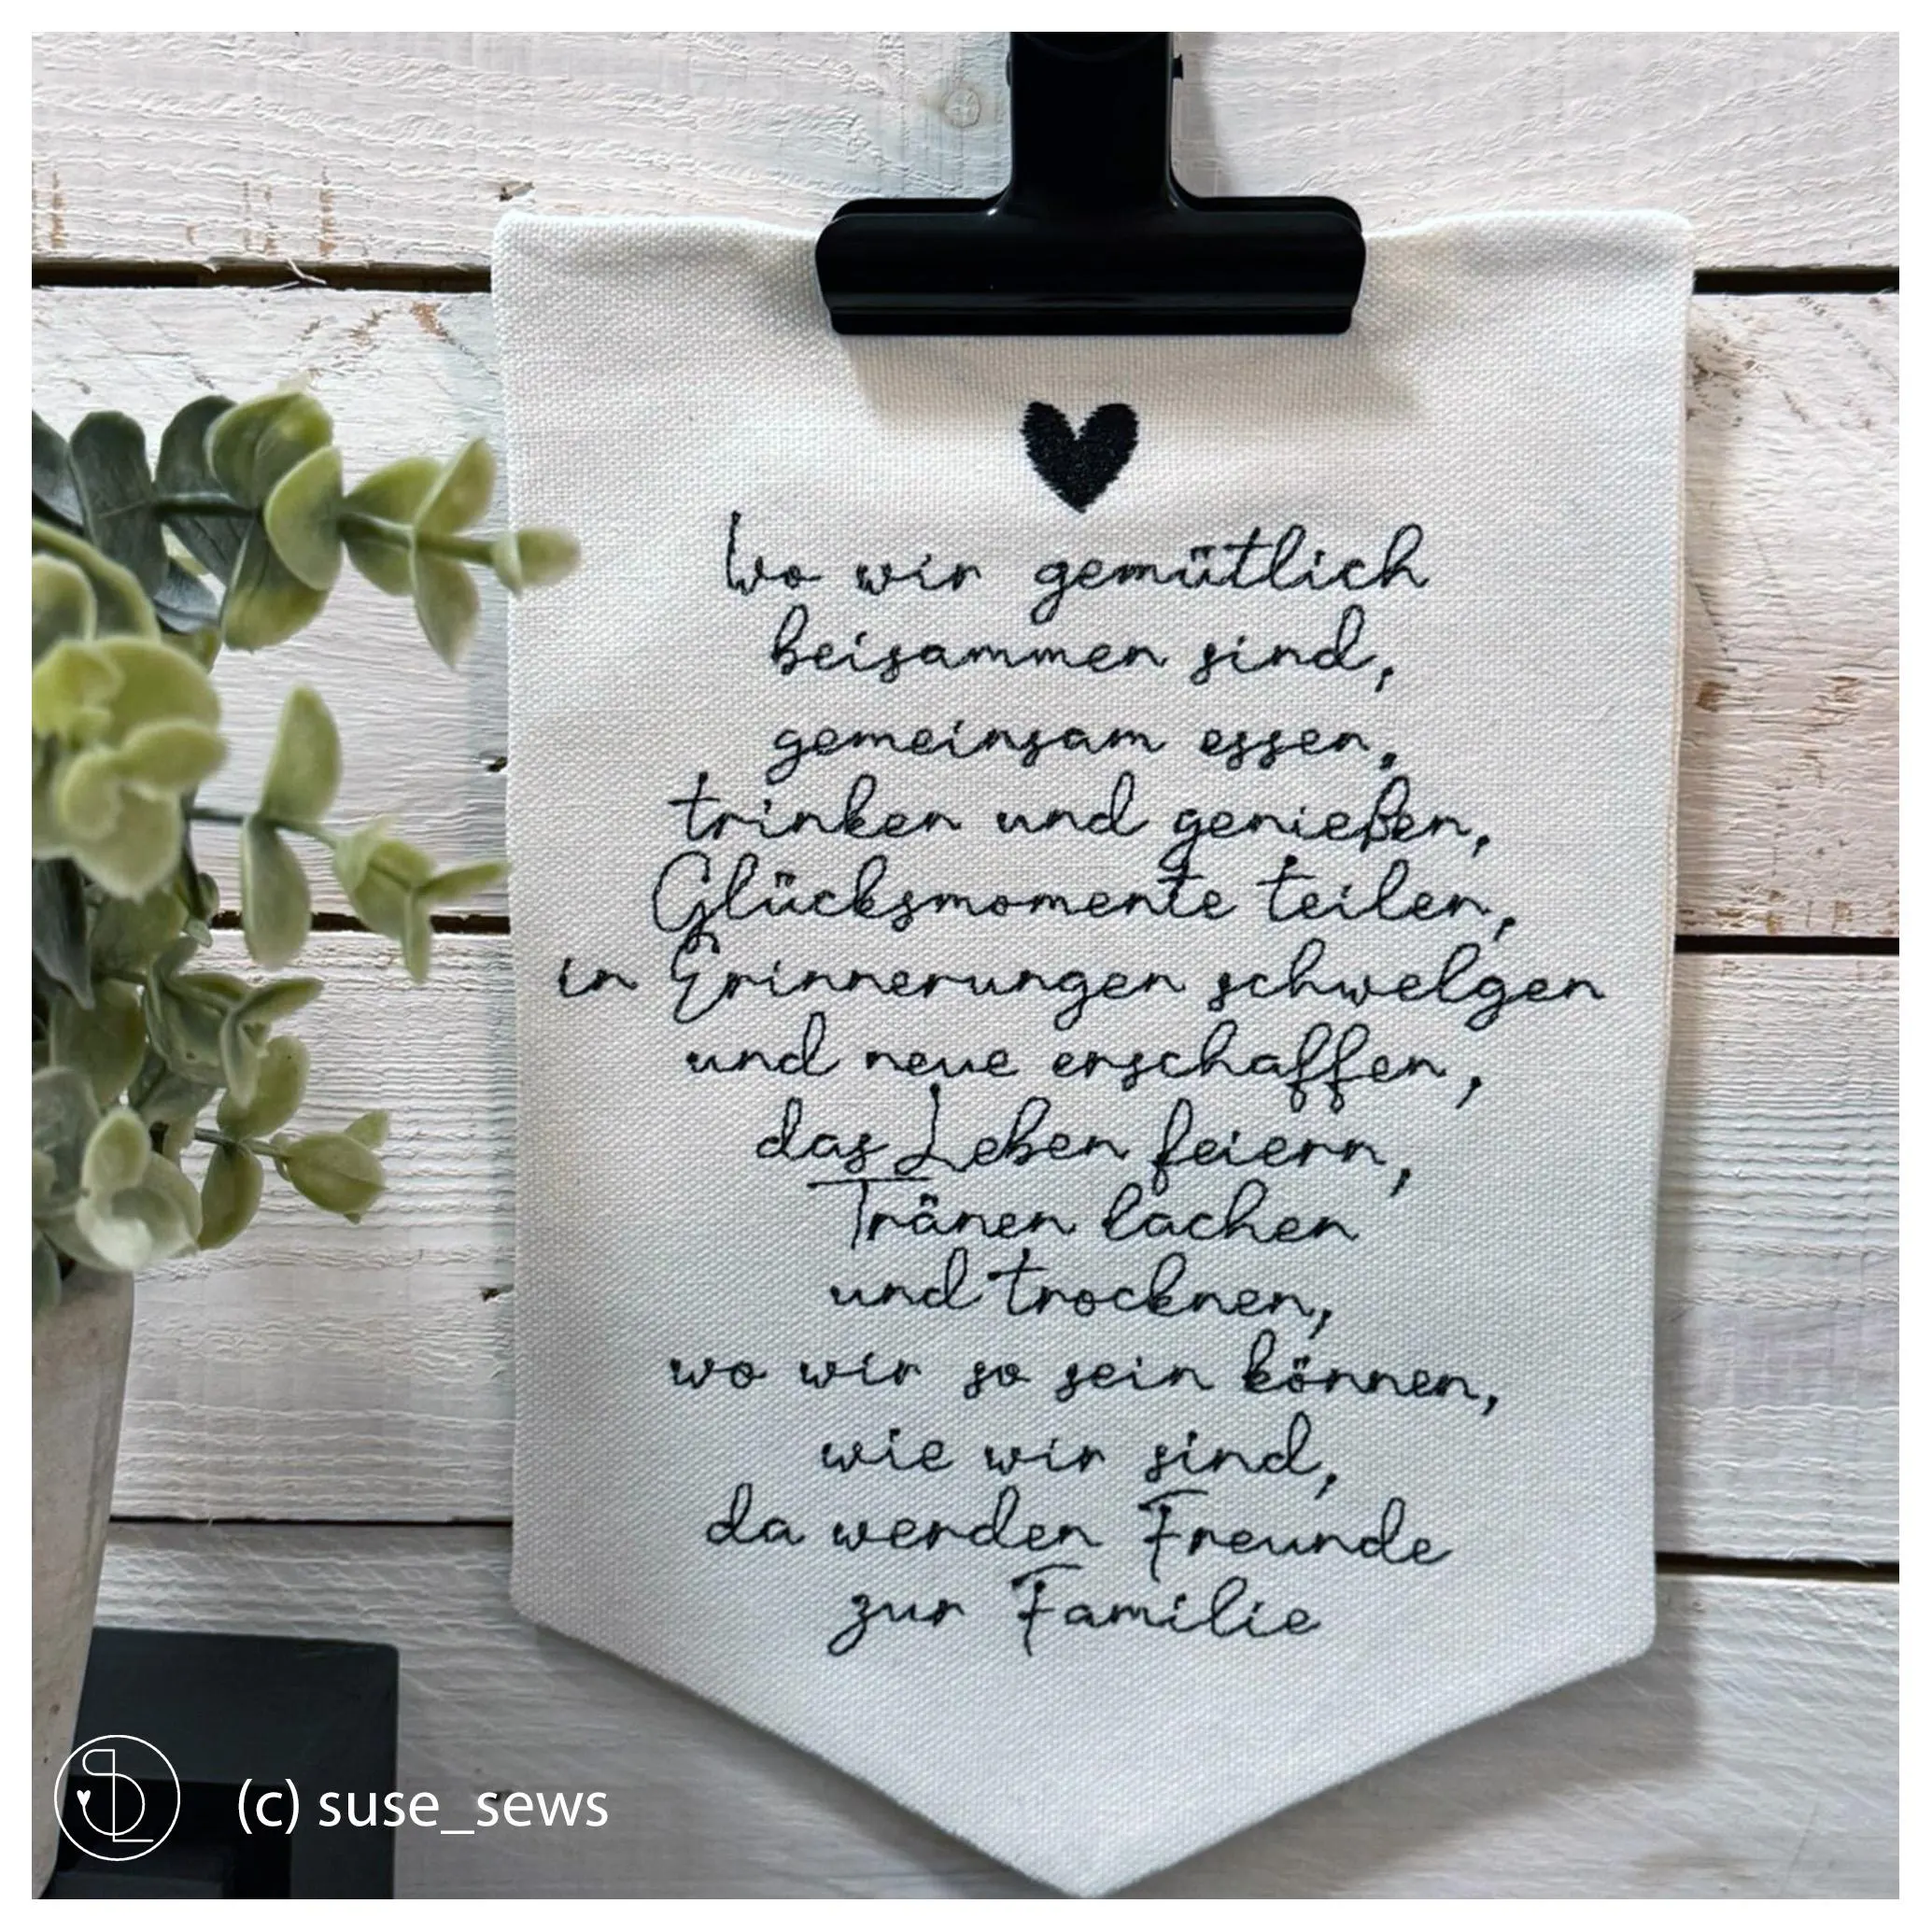 Wo wir gemütlich
beisammen sind,
gemeinsam essen,
trinken und genießen,
Glücksmomente teilen,
in Erinnerungen schwelgen
und neue erschaffen,
das Leben feiern,
Tränen lachen
und trocknen,
wo wir so sein können,
wie wir sind,
da werden Freunde
zur Familie
(c) suse_sews